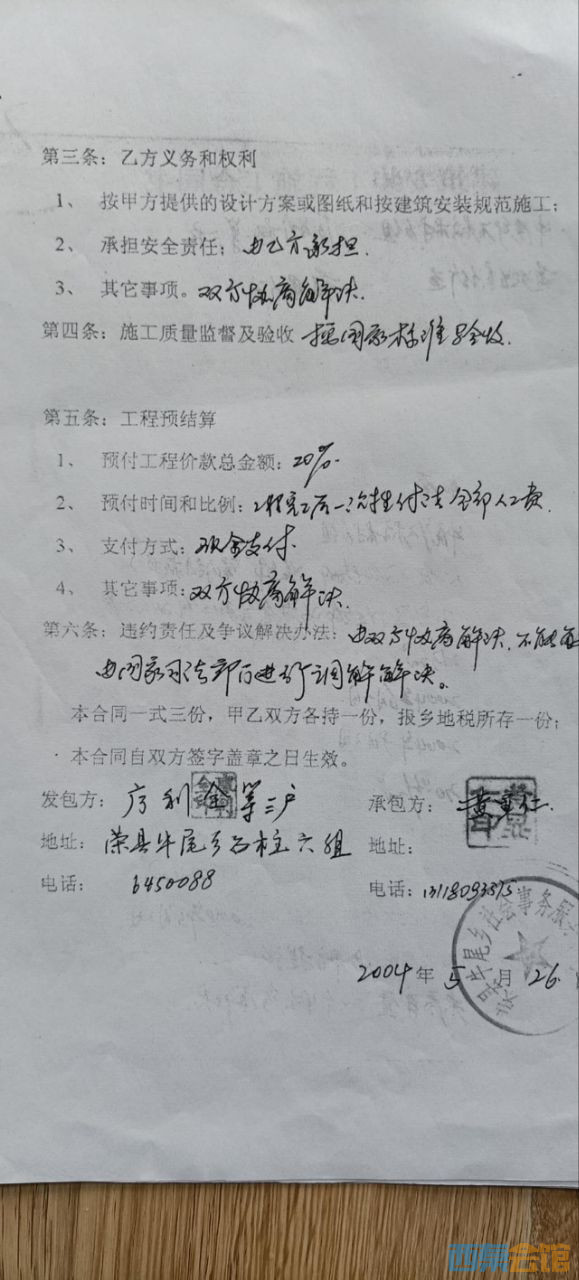 第三条：乙方义务和权利
1、 按甲方提供的设计方案或图纸和按建筑安装规范施工；
2、 承担安全责任：由乙方承担.
3、 其它事项。双方协商解决.
第四条：施工质量监督及验收 按国家标准验收.
第五条：工程预结算
1、 预付工程价款总金额：20%.
2、 预付时间和比例：工程完工后一次性付清全部人工费.
3、 支付方式：现金支付.
4、 其它事项：双方协商解决.
第六条：违约责任及争议解决办法：由双方协商解决.不能
由国家司法部门进行调解解决。
本合同一式三份，甲乙双方各持一份，报乡地税所存一份；
本合同自双方签字盖章之日生效。
发包方： 利金等三户 承包方：
地址： 荣县牛尾乡石柱六组 地址：
电话： 6450088 电话：
牛尾乡社会事务服
2004年5月26
西祠会馆